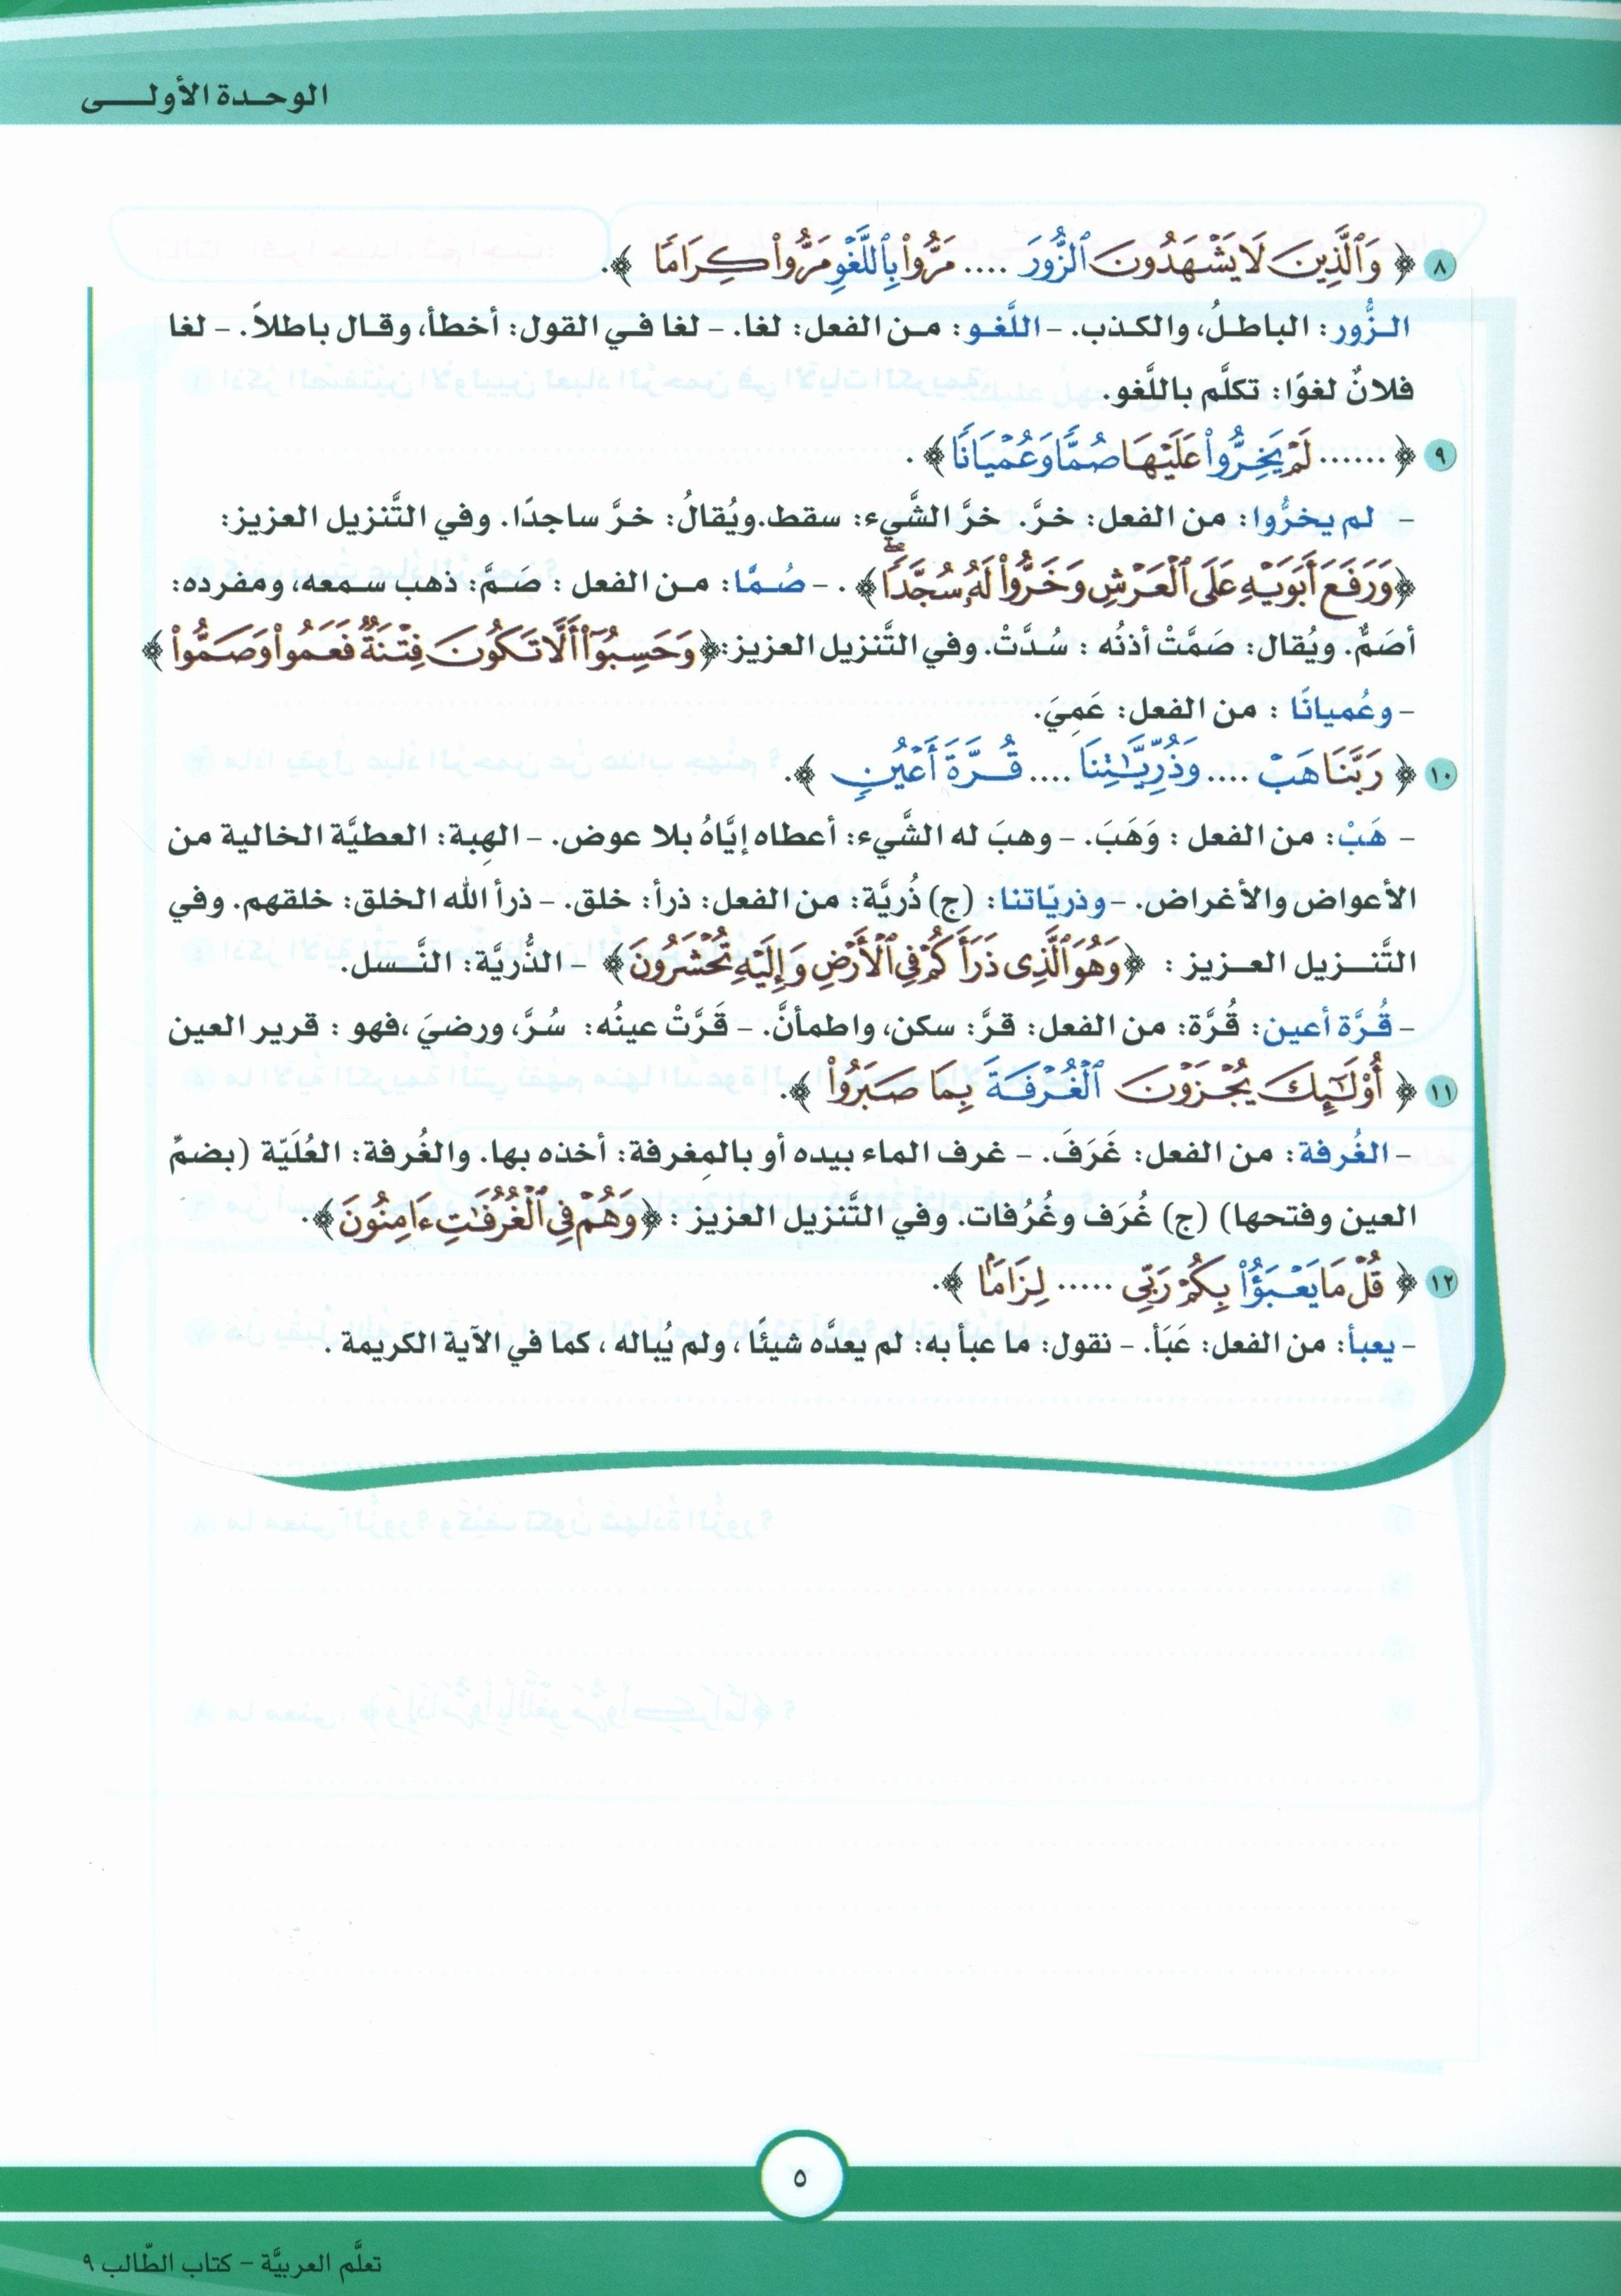 الوحدة الأولى
٨ ﴿ وَٱلَّذِينَ لَا يَشْهَدُونَ ٱلزُّورَ .... مَرُّوا۟ بِٱللَّغْوِ مَرُّوا۟ كِرَامًا ﴾.
الزُّور: الباطلُ، والكذب. – اللَّغو: من الفعل: لغا. – لغا في القول: أخطأ، وقال باطلاً. – لغا
فلانٌ لغوًا: تكلَّم باللَّغو.
٩ ﴿ ...... لَمْ يَخِرُّوا۟ عَلَيْهَا صُمًّا وَعُمْيَانًا ﴾ .
– لم يخرُّوا: من الفعل: خرَّ. خرَّ الشَّيء: سقط.ويُقالُ: خرَّ ساجدًا. وفي التَّنزيل العزيز:
﴿وَرَفَعَ أَبَوَيْهِ عَلَى ٱلْعَرْشِ وَخَرُّوا۟ لَهُۥ سُجَّدًۭا ۖ﴾ . – صُمًّا: من الفعل : صَمَّ: ذهب سمعه، ومفرده:
أصَمٌّ. ويُقال: صَمَّتْ أذنُه : سُدَّتْ. وفي التَّنزيل العزيز:﴿وَحَسِبُوٓا۟ أَلَّا تَكُونَ فِتْنَةٌۭ فَعَمُوا۟ وَصَمُّوا۟ ﴾
– وعُميانًا : من الفعل: عَمِيَ.
١٠ ﴿ رَبَّنَا هَبْ .... وَذُرِّيَّـٰتِنَا .... قُرَّةَ أَعْيُنٍ ﴾.
– هَبْ: من الفعل : وَهَبَ. – وهبَ له الشَّيء: أعطاه إيَّاهُ بلا عوض. – الهِبة: العطيَّة الخالية من
الأعواض والأغراض. – وذريّاتنا: (ج) ذُريَّة: من الفعل: ذرأ: خلق. – ذرأ الله الخلق: خلقهم. وفي
التَّنزيل العزيز : ﴿وَهُوَ ٱلَّذِى ذَرَأَكُمْ فِى ٱلْأَرْضِ وَإِلَيْهِ تُحْشَرُونَ﴾ – الذُّريَّة: النَّسل.
– قُرَّة أعين: قُرَّة: من الفعل: قرَّ: سكن، واطمأنَّ. – قَرَّتْ عينُه: سُرَّ، ورضيَ ،فهو : قرير العين
١١ ﴿ أُو۟لَـٰٓئِكَ يُجْزَوْنَ ٱلْغُرْفَةَ بِمَا صَبَرُوا۟ ﴾.
– الغُرفة: من الفعل: غَرَفَ. – غرف الماء بيده أو بالمِغرفة: أخذه بها. والغُرفة: العُلَيّة (بضمِّ
العين وفتحها) (ج) غُرَف وغُرُفات. وفي التَّنزيل العزيز : ﴿وَهُمْ فِى ٱلْغُرُفَـٰتِ ءَامِنُونَ﴾.
١٢ ﴿ قُلْ مَا يَعْبَؤُا۟ بِكُمْ رَبِّى ...... لِزَامًۢا ﴾.
– يعبأ: من الفعل: عَبَأ. – نقول: ما عبأ به: لم يعدَّه شيئًا ، ولم يُباله ، كما في الآية الكريمة .
٥
تعلَّم العربيَّة – كتاب الطّالب ٩